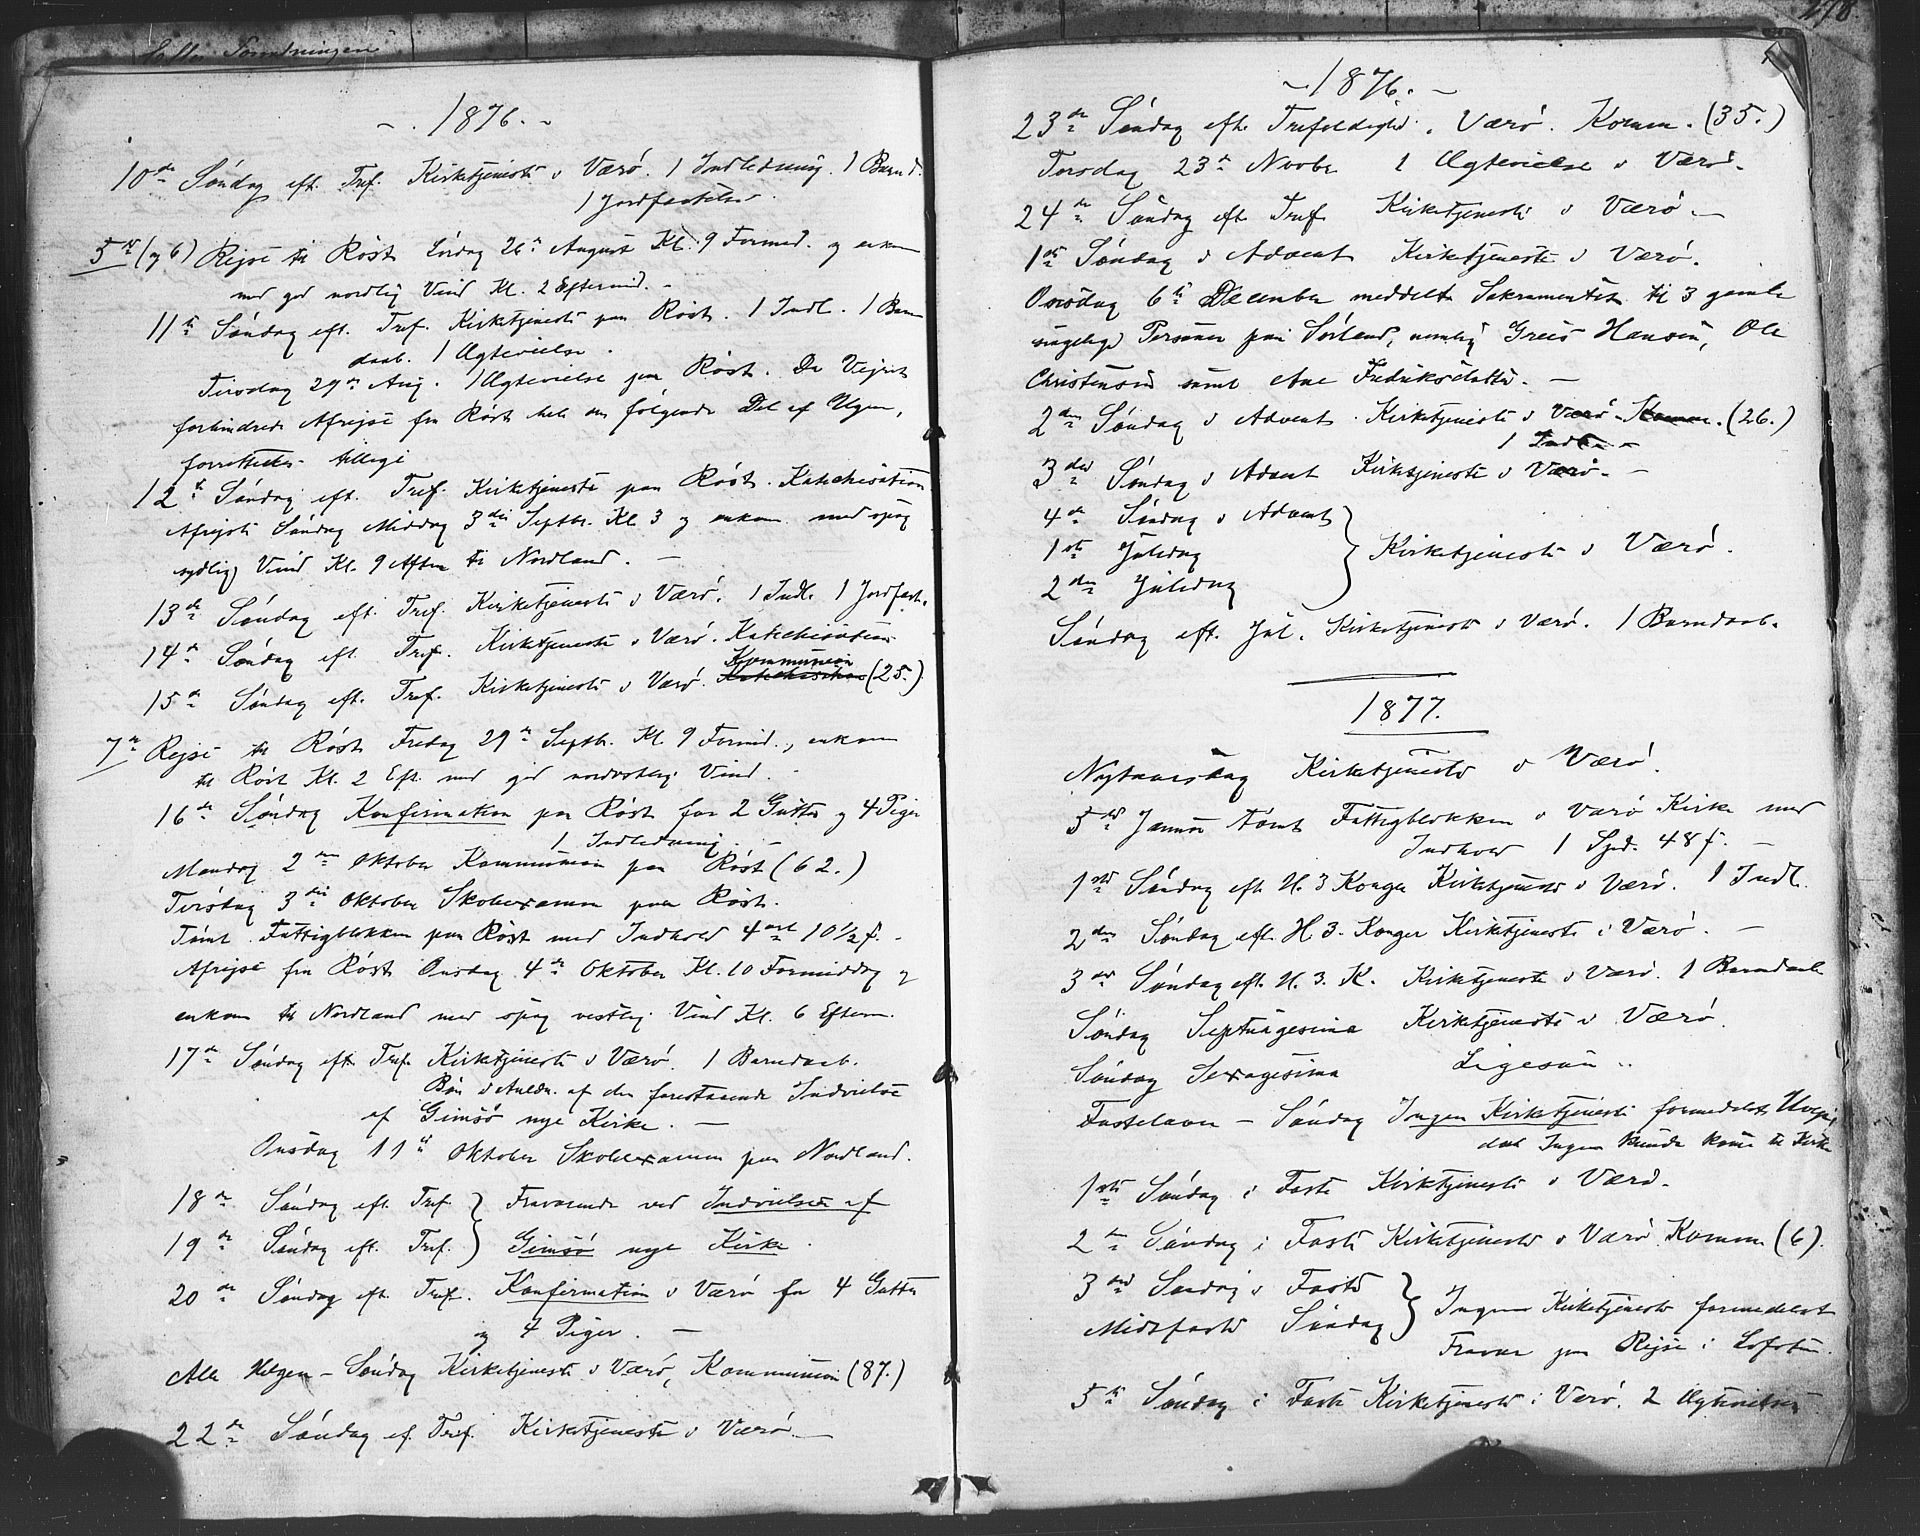 - . 1876. -
10de Søndag eft. Tref. Kirketjeneste i Værø. 1 Indledning. 1 Barnd.
1 Jordfæstelse.
5te (og 6) Rejse til Røst Lørdag 26de August Kl. 9 Formd. og ankom
med god nordlig Vind Kl. 2 Eftermid. -
11te Søndag eft. Tref. Kirketjeneste paa Røst. 1 Indl. 1 Barn
daab. 1 Ægtevielse.
Tirsdag 29de Aug. 1 Ægtevielse paa Røst. Da Vejret
forhindrede Afrejse fra Røst hele den følgende Del af Ugen,
forrettedes tillige
12te Søndag eft. Tref. Kirketjeneste paa Røst. Katekisation
Afrejste Søndag Middag 3die Septbr. Kl. 3 og ankom med spag
sydlig Vind Kl. 9 Aften til Nordland. -
13de Søndag eft. Tref. Kirketjeneste i Værø. 1 Indl. 1 Jordfæst.
14de Søndag eft. Tref. Kirketjeneste i Værø. Katekisation
Kommunion
15de Søndag eft. Tref. Kirketjeneste i Værø. Katekisation (25.)
7de Rejse til Røst Fredag 29de Septb. Kl. 9 Formid., ankom
til Røst Kl. 2 Eft. med god nordostlig Vind.
16de Søndag Konfirmation paa Røst for 2 Gutter og 4 Piger
1 Indledning. -
Mandag 2den Oktober Kommunion paa Røst (62.)
Tirsdag 3die Oktober Skoleexamen paa Røst.
Tømt Fattigblokken paa Røst med Indhold 4 ort 10 1/2 s. -
Afrejse fra Røst Onsdag 4de Oktober Kl. 10 Formiddag og
ankom til Nordland med spag vestlig Vind Kl. 6 Efterm.
17de Søndag eft. Tref. Kirketjeneste i Værø. 1 Barndaab.
Bøn i Anledn. af den forestaaende Indvielse
af Gimsø nye Kirke. -
Onsdag 11te Oktober Skoleexamen paa Nordland.
18de Søndag eft. Tref. } Fraværende ved Indvielsen af
19de Søndag eft. Tref. } Gimsø nye Kirke.
20de Søndag eft. Tref. Konfirmation i Værø for 4 Gutter
og 4 Piger. -
Alle Helgen - Søndag Kirketjeneste i Værø, Kommunion (87.)
22de Søndag ef. Tref. Kirketjeneste i Værø. -
- 1876. -
23de Søndag eft. Trefoldighed i Værø. Komm. (35.)
Torsdag 23de Novbr 1 Ægtevielse i Værø.
24de Søndag eft Tref. Kirketjeneste i Værø. -
1ste Søndag i Advent Kirketjeneste i Værø.
Onsdag 6te December meddelt Sakramentet til 3 gamle
svagelige Personer paa Sørland, nemlig Greis Hansen, Ole
Christensen samt Ane Fredriksdatter. -
2den Søndag i Advent. Kirketjeneste i Værø. Komm. (26.)
1 Indl. -
3die Søndag i Advent Kirketjeneste i Værø. -
4de Søndag i Advent }
1ste Juledag } Kirketjeneste i Værø.
2den Juledag }
Søndag eft. Jul. Kirketjeneste i Værø. 1 Barndaab.
1877.
Nytaarsdag Kirketjeneste i Værø.
5te Januar tømt Fattigblokken i Værø Kirke med
Indhold 1 Spd. 48 s. -
1ste Søndag eft. H. 3 Konger Kirketjeneste i Værø. 1 Indl.
2den Søndag eft. H. 3. Konger Kirketjeneste i Værø. -
3die Søndag eft. H. 3. K. Kirketjeneste i Værø. 1 Barndaab
Søndag Septuagesima Kirketjeneste i Værø.
Søndag Sexagesima Ligesaa ..
Fastelavn - Søndag Ingen Kirketjeneste formedelst Uvejr,
da Ingen kunde komme til Kirke
1ste Søndag i Faste Kirketjeneste i Værø.
2den Søndag i Faste Kirketjeneste i Værø. Komm (6).
3die Søndag i Faste } Ingen Kirketjeneste formedelst
Midfaste Søndag } Fravær paa Rejse i Lofoten.
5te Søndag i Faste Kirketjeneste i Værø. 2 Ægtevielser